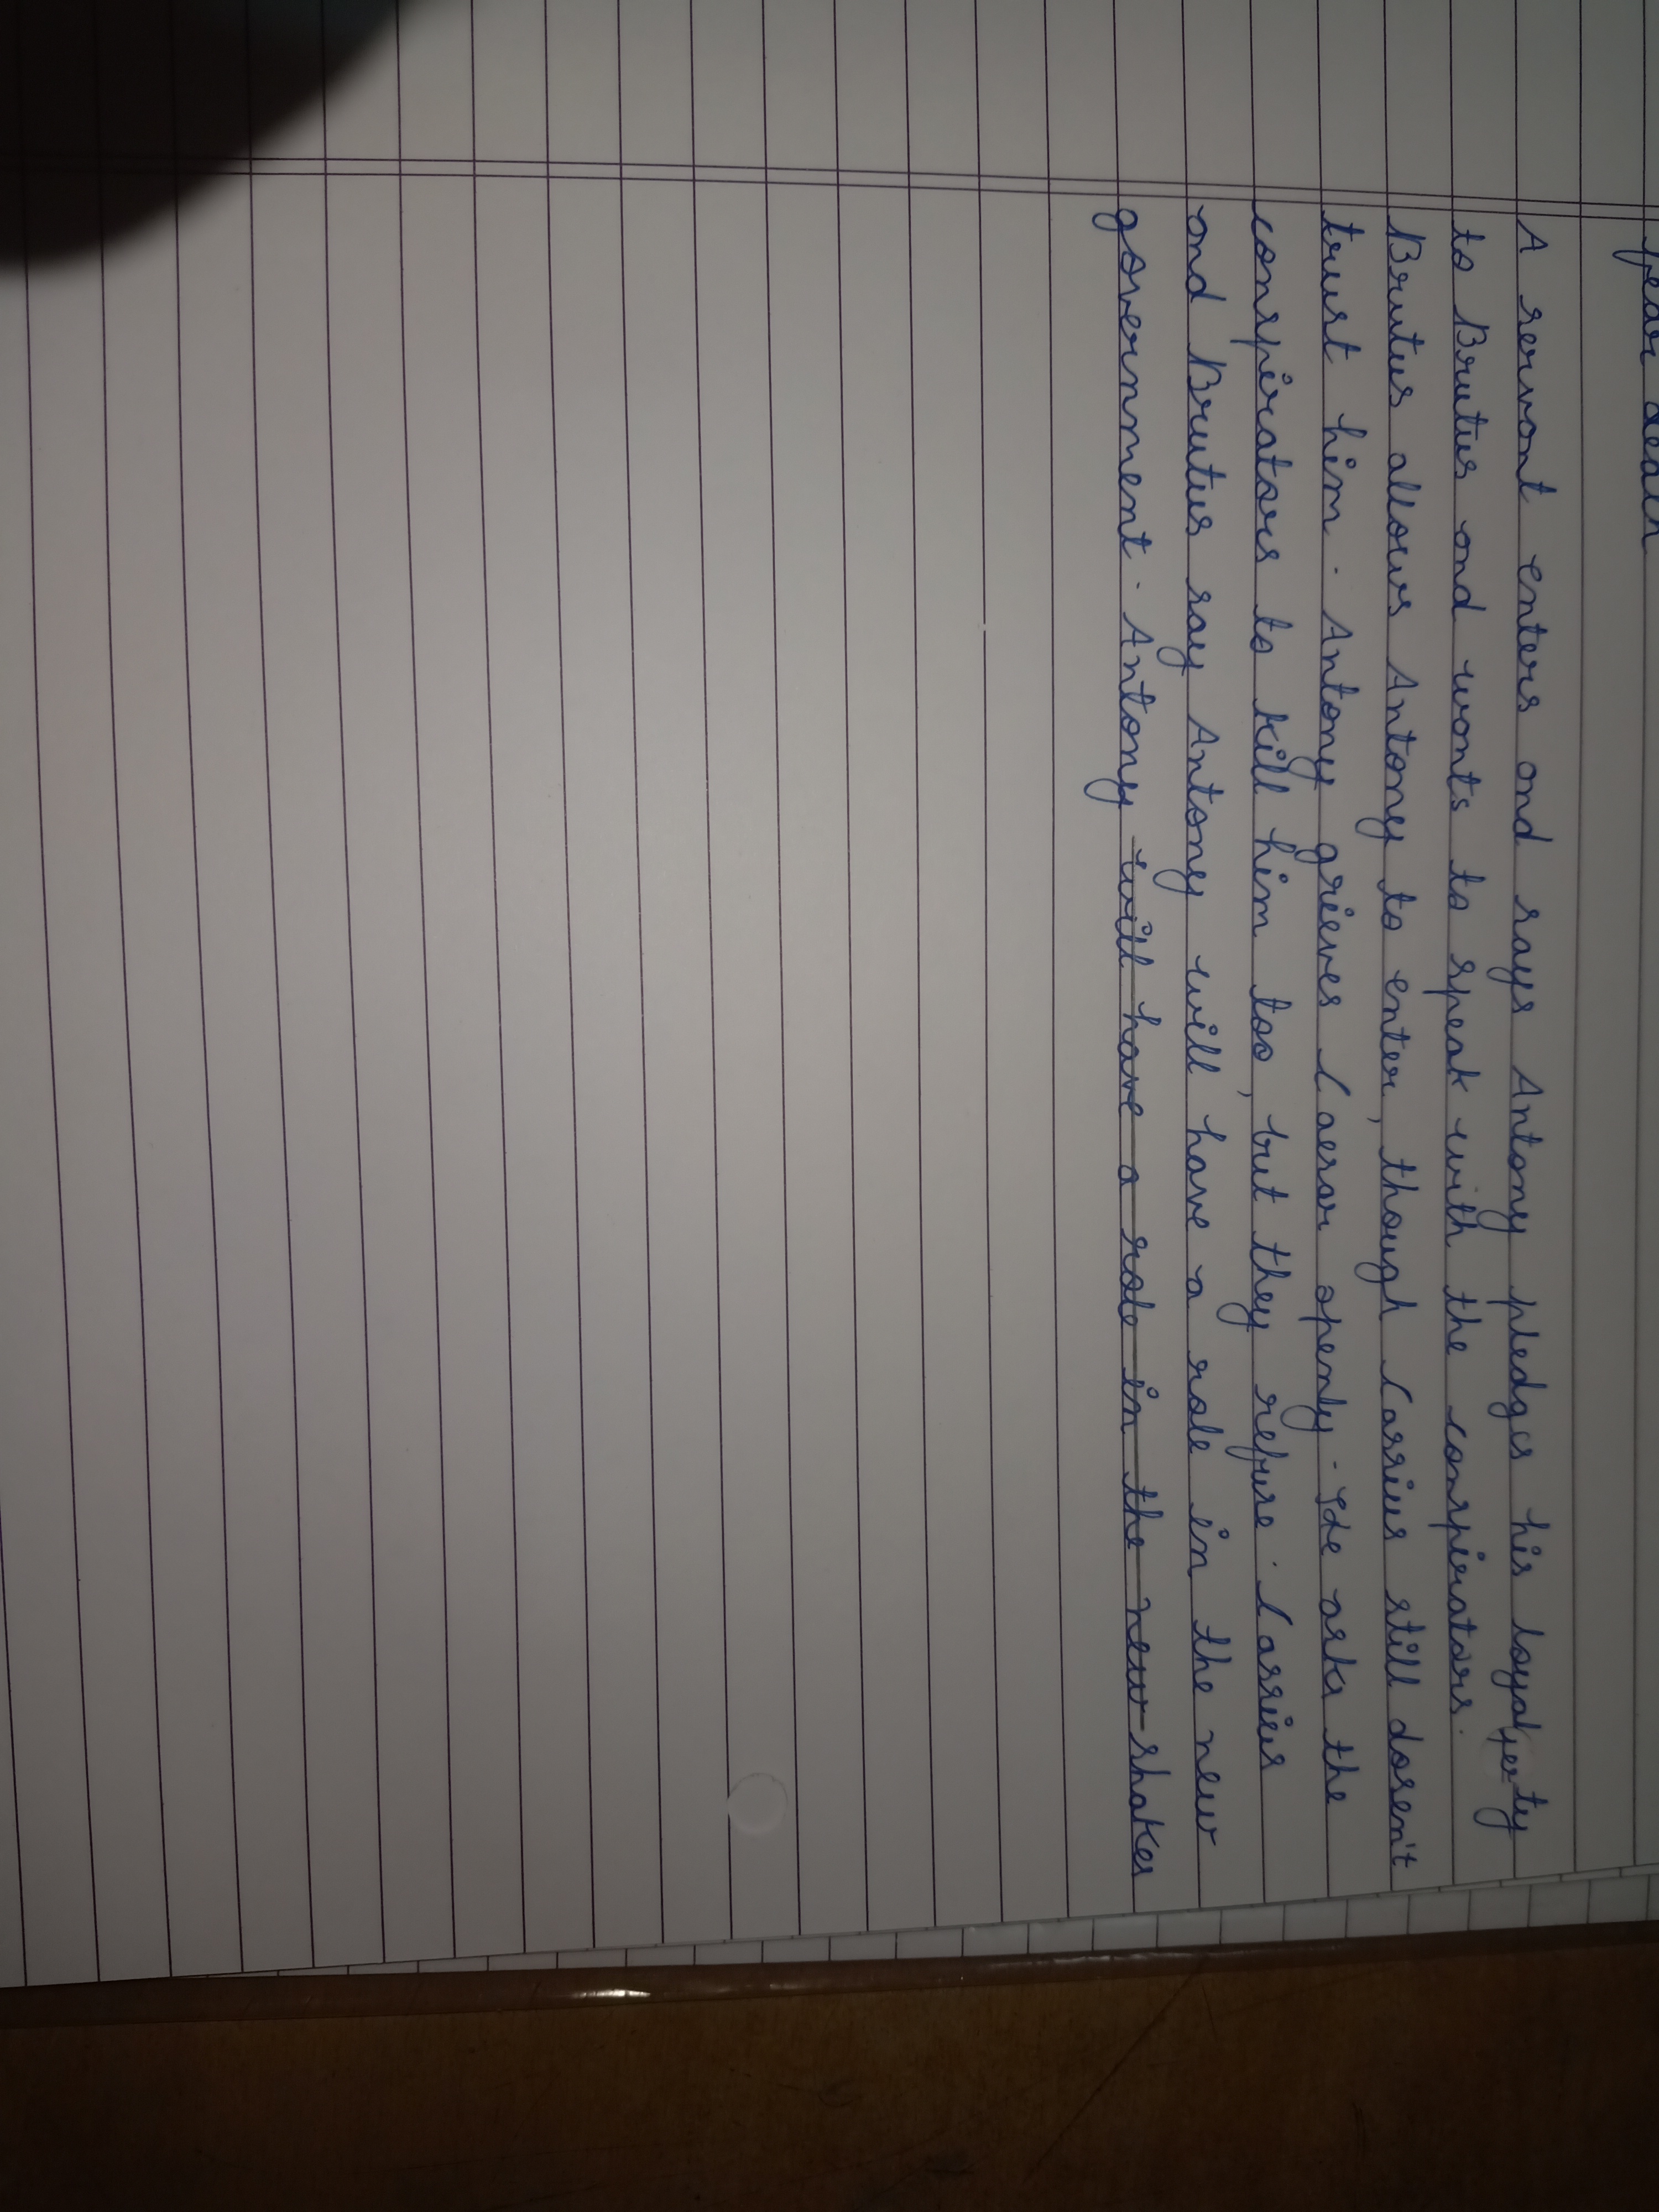 fear death
A servant enters and says Antony pledges his loyalty
to Brutus and wants to speak with the conspirators.
Brutus allows Antony to enter, though Cassius still dosen't
trust him. Antony grieves Caesar openly. He asks the
conspirators to kill him too, but they refuse. Cassius
and Brutus say Antony will have a role in the new
government. Antony will have a role in the new shakes